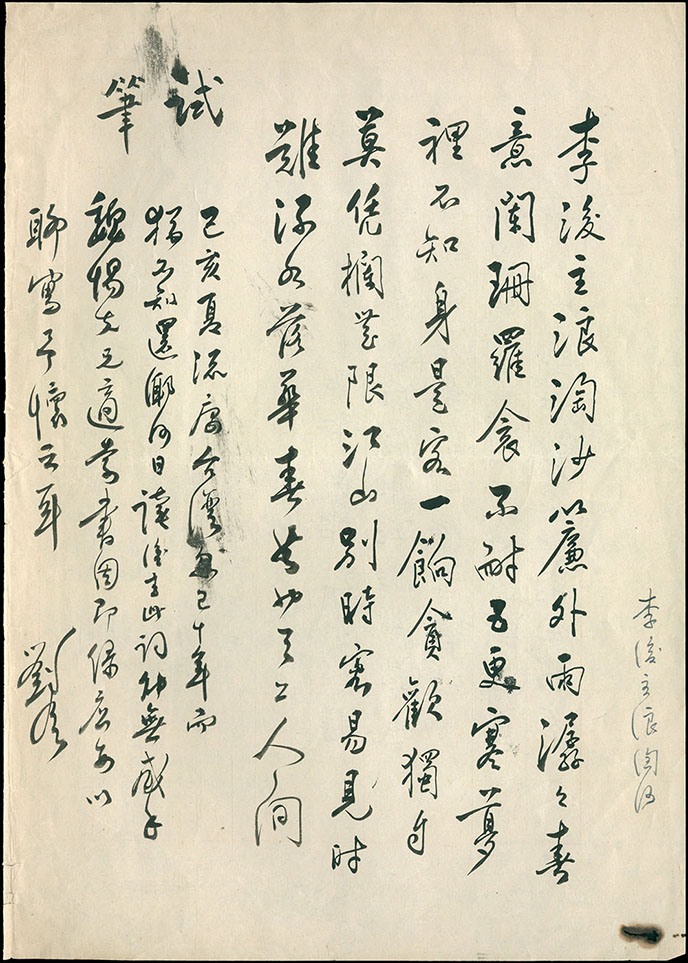 李後主浪淘沙
李後主浪淘沙簾外雨潺々春
意闌珊羅衾不耐五更寒夢
裡不知身是客一餉貪歡獨自
莫凭攔無限江山別時容易見時
難流水落華春去也天上人間
試筆
己亥夏流寓台灣忽已十年而
猶不知還鄉何日讀後主此詞能無感乎
兄適索書因即錄應命以
聊寫予懷云耳
劉